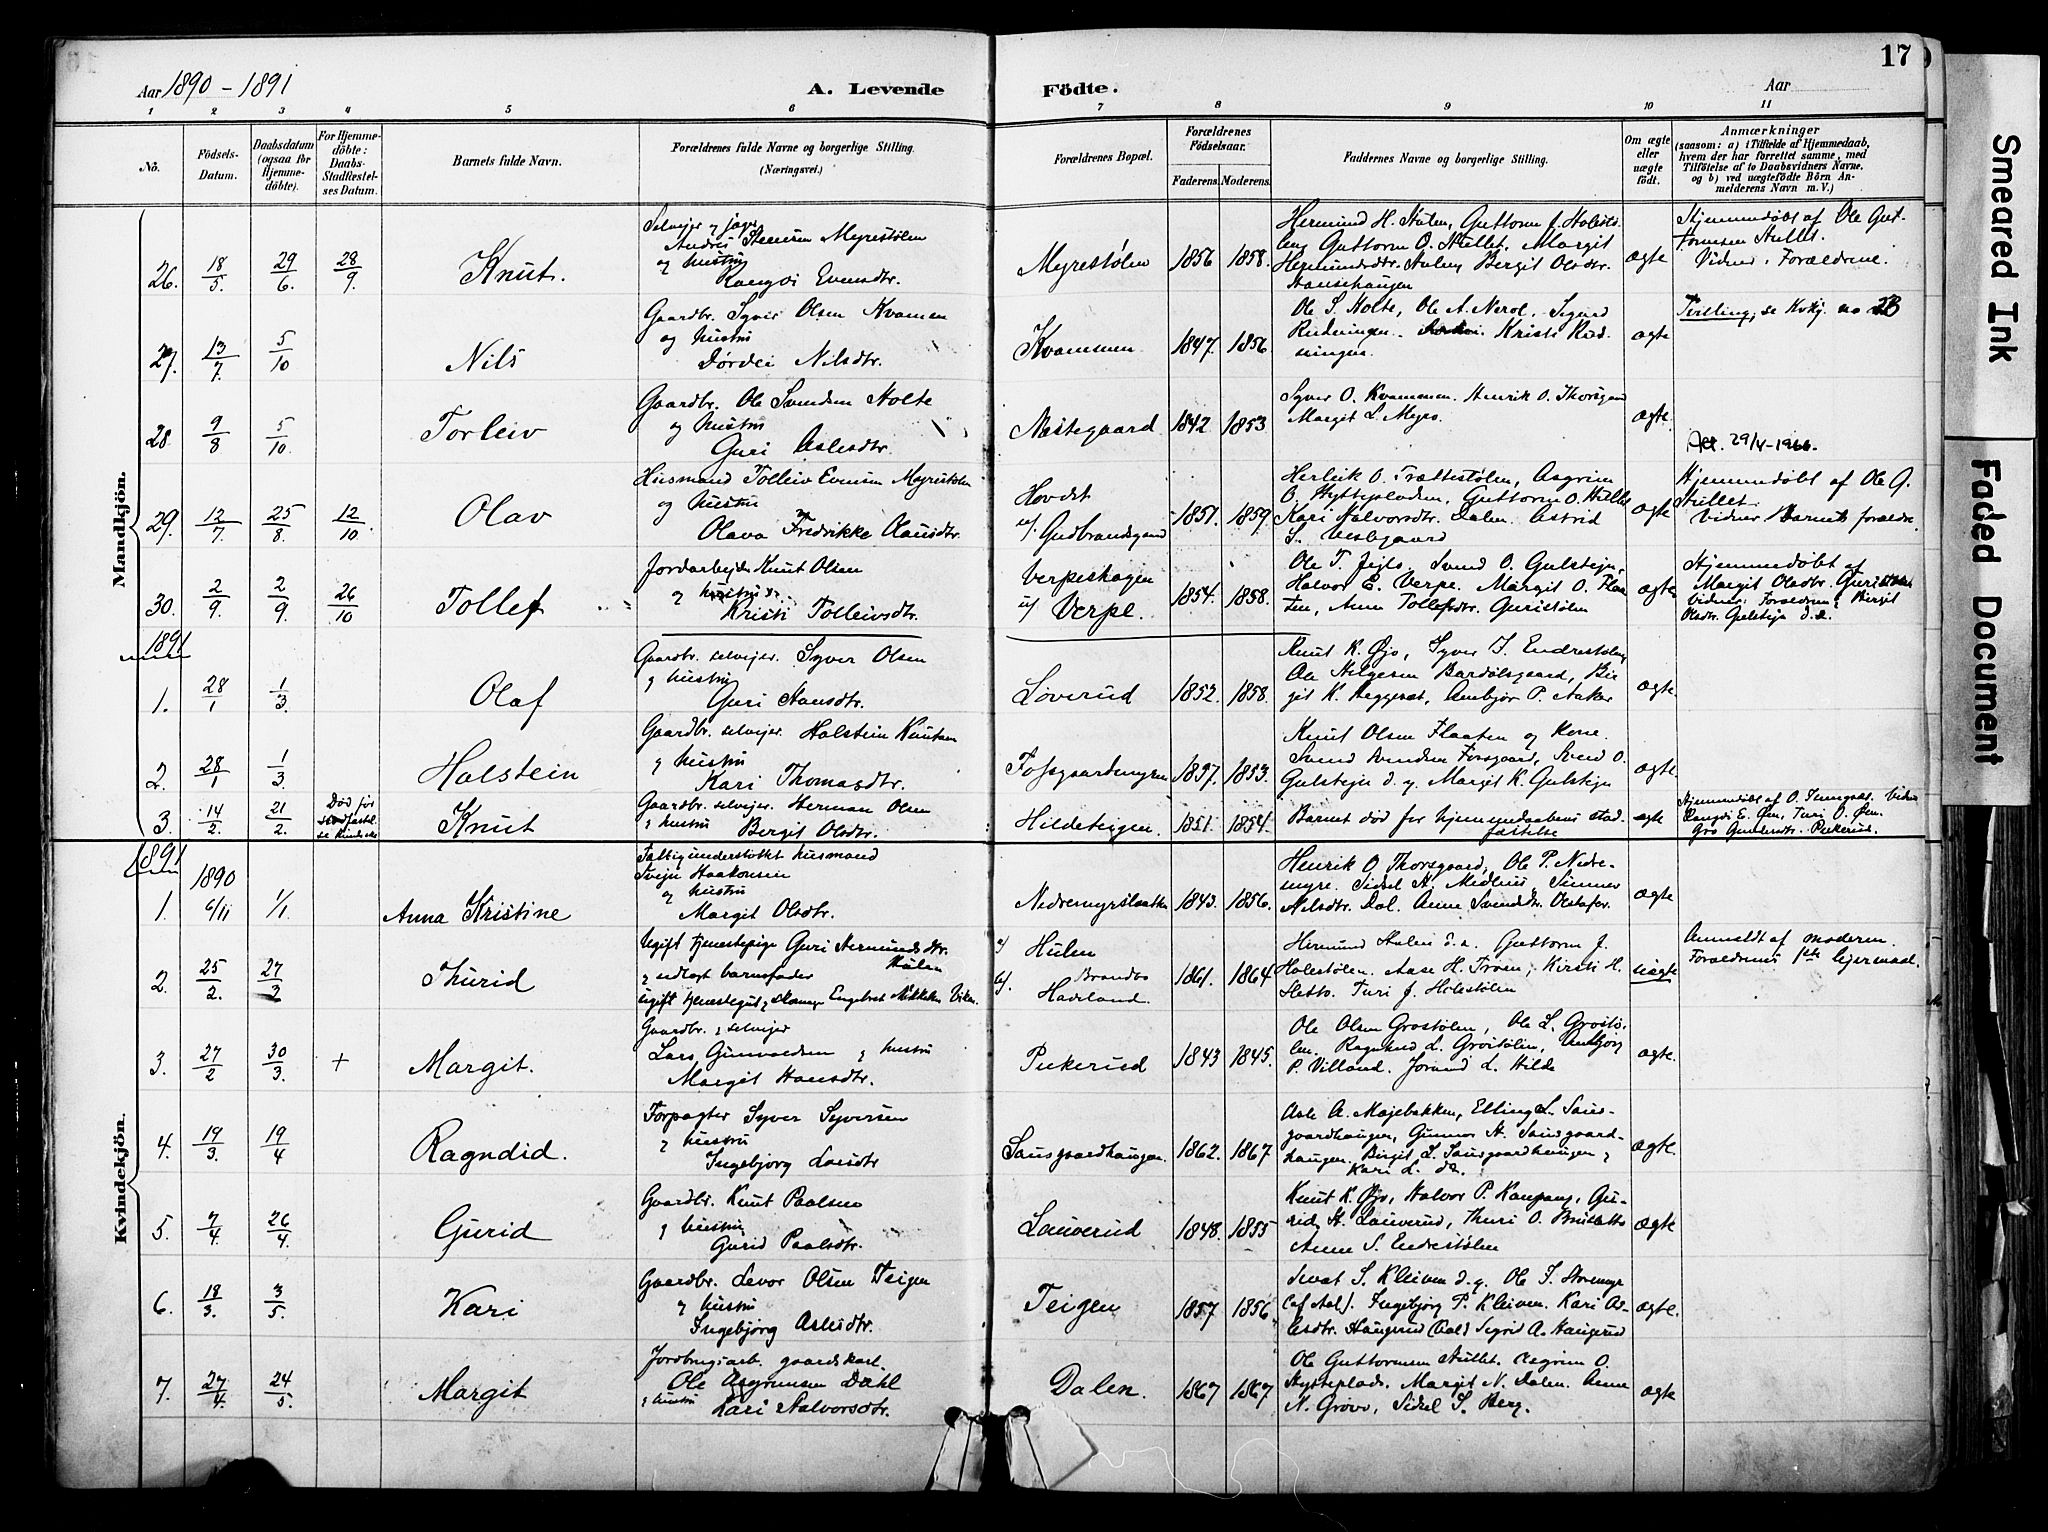 17
Aar 1890 - 1891
A. Levende
Födte.
Aar
1 2 3 4 5 6 7 8 9 10 11
No.
Födsels-Datum.
Daabsdatum (ogsaa for Hjemmedöbte).
For Hjemmedöbte: Daabs-Stadfæstelses Datum.
Barnets fulde Navn.
Forældrenes fulde Navne og borgerlige Stilling.
(Næringsvei.)
Forældrenes Bopæl.
Forældrenes Födselsaar.
Faderens. Moderens.
Faddernes Navne og borgerlige Stilling.
Om ægte eller uægte födt.
Anmærkninger
(saasom: a) i Tilfælde af Hjemmedaab, hvem der har forrettet samme, med Tilföielse af to Daabsvidners Navne, og b) ved uægtefödte Börn Anmelderens Navn m. V.)
Mandkjön.
26. 18/5 29/6 28/9 Knut.
Selveier og
Andris Myrestølen
og hustru
Evensdtr.
Myrestølen 1856 1858. ægte
Hjemmedøbt af Ole Gut-
tormsen Hullet.
Vidner: Forældrene.
27. 13/7 5/10 Nils
Gaardbr. Syver Olsen Kvamen
og hustru
Dørdei Nilsdtr.
Kvammen 1847. 1856.
Ole S. Holte, Ole A. Nerol. Sigurd
Rudningen. Kristi Rud-
ningen.
ægte
Tvilling, se Kvkj. no 23
28. 9/8 5/10 Torleiv
Gaardbr. Ole Svendsen Holte
og hustru
Guri Aslesdtr.
Nestegaard 1842 1853
Syver O. Kvammen. Henrik O. Thorsgaard
Margit L. Myro.
ægte.
29/4-1966.
29. 12/7 25/8 12/10 Olav
Husmand Tolleiv Evensen Myrestølen
og hustru
Olava Fredrikke Olausdtr.
Hovdet
u/ Gudbrandsgaard
1851. 1859.
Herleik O. Trættestølen, Asgrim
O. Hyttepladsen, Guttorm O. Hullet
Kari Halvorsdtr. Dalen. Astrid
S. Vestegaard
ægte
Hjemmedøbt af Ole G.
Hullet
Vidner Barnets forældre
30. 2/9 2/9 26/10 Tollef
Jordarbejder Knut Olsen
og hustru
Kristi Tolleivsdtr.
Verpeshagen
u/ Verpe.
1854. 1858.
Halvor E. Verpe. Margit O.
Anne Tollefsdtr. Guristølen
ægte
Hjemmedøbt af
Margit Olsdtr.
Vidner: Forældrene, Birgit
Olsdtr. Gulstejn d.e.
1891
1. 28/1 1/3 Olaf
Gaardbr. selvejer. Syver Olsen
og hustru
Guri Hansdtr.
Løverud 1852. 1858.
Knut K. Øjo, Syver I. Endrestølen,
Ole Helgesen Bardølsgaard, Bir-
git K. Anbjør P. Aaker
ægte
2. 28/1 1/3 Holstein
Gaardbr. selvejer. Holstein Knutsen
og hustru
Kari Thomasdtr.
Fossgaardmyren 1837. 1853.
Knut Olsen Flaaten og Kone.
Svend Svendsen Forsgaard, Svend O.
Gulstejn d. y. Margit K. Gulstejn
ægte.
3. 14/2. 21/2. Død før
stadfæstelse
Knut
Gaardbr. selvejer. Herman Olsen
og hustru Bergit Olsdtr.
Hildeteigen 1851. 1854.
Barnet død før hjemmedaabens stad-
fæstelse
ægte
Kvindekjön.
1891
1. 1890 6/11 1/1 Anna Kristine
Fattigunderstøttet husmand
Svejn Haakonsen
og hustru
Margit Olsdtr.
Nedremyrslaatten 1843. 1856.
Henrik O. Thorsgaard, Ole P. Nedre-
myre. Sidsel H. Midhus, Simmer
Nilsdtr. Dal. Anne Svendsdtr.
ægte
2. 25/2. 27/3 Thurid
Ugift tjenestepige Guri Hermundsdtr.
Hulen
og udlagt barnefader
ugift tjenestegut Engebret Mikkelsen Viken
a) Hulen
b). Brandbo
Hadeland.
1861. 1864
Hermund Hulen d.e. Guttorm J.
Holestølen. Aase H. Kirsti H.
Sletto. Turi J. Holestølen
uægte
Anmeldt af moderen.
Forældrenes 1ste lejermaal.
3. 27/2 30/3. + Margit.
Gaardbr. og selvejer
Lars Gunvaldsen og hustru
Margit Hansdtr.
Pukerud 1843 1845.
Ole Olsen Grøstølen, Ole L. Grøstø-
len. Ragnhild L. Grøstølen, Anbjørg
P. Villand. Jorand L. Hilde
ægte.
4. 19/3. 19/4 Ragndid.
Forpagter Syver Syversen
og hustru
Ingebjørg Larsdtr
Sausgaardhaugen. 1862. 1867.
Asle A. Mojebakken, Elling L. Saus-
gaardhaugen, Gunnar H. Sausgaard-
haugen. Birgit L. Sausgaardhaugen og
Kari L. do.
ægte.
5. 7/4. 26/4. Gurid
Gaardbr. Knut Paalsen
og hustru
Gurid Paalsdtr.
Lauverud 1848. 1855
Knut K. Øjo, Halvor P. Kaupang, Gu-
rid H. Lauverud, Thuri O.
Anne S. Endrestølen
ægte
6. 18/3. 3/5. Kari
Gaardbr. Levor Olsen Teigen
og hustru
Ingebjørg Aslesdtr.
Teigen 1857 1856
Sevat S. Kleiven d. y. Ole I.
(af Aal). Ingebjørg P. Kleiven. Kari As-
lesdtr. Haugerud (Aal) Sigrid A. Haugerud
ægte.
7. 27/4. 24/5. Margit
Jordbrugsarb. gaardskarl.
Ole Asgrimsen Dæhl
og hustru Kari Halvorsdtr.
Dalen. 1867 1867
Ole Guttormsen Hullet. Asgrim O.
Hytteplads. Margit N. Dalen. Anne
N. Grøvo, Sidsel S. Berg.
ægte
Smeared Ink
Faded Document